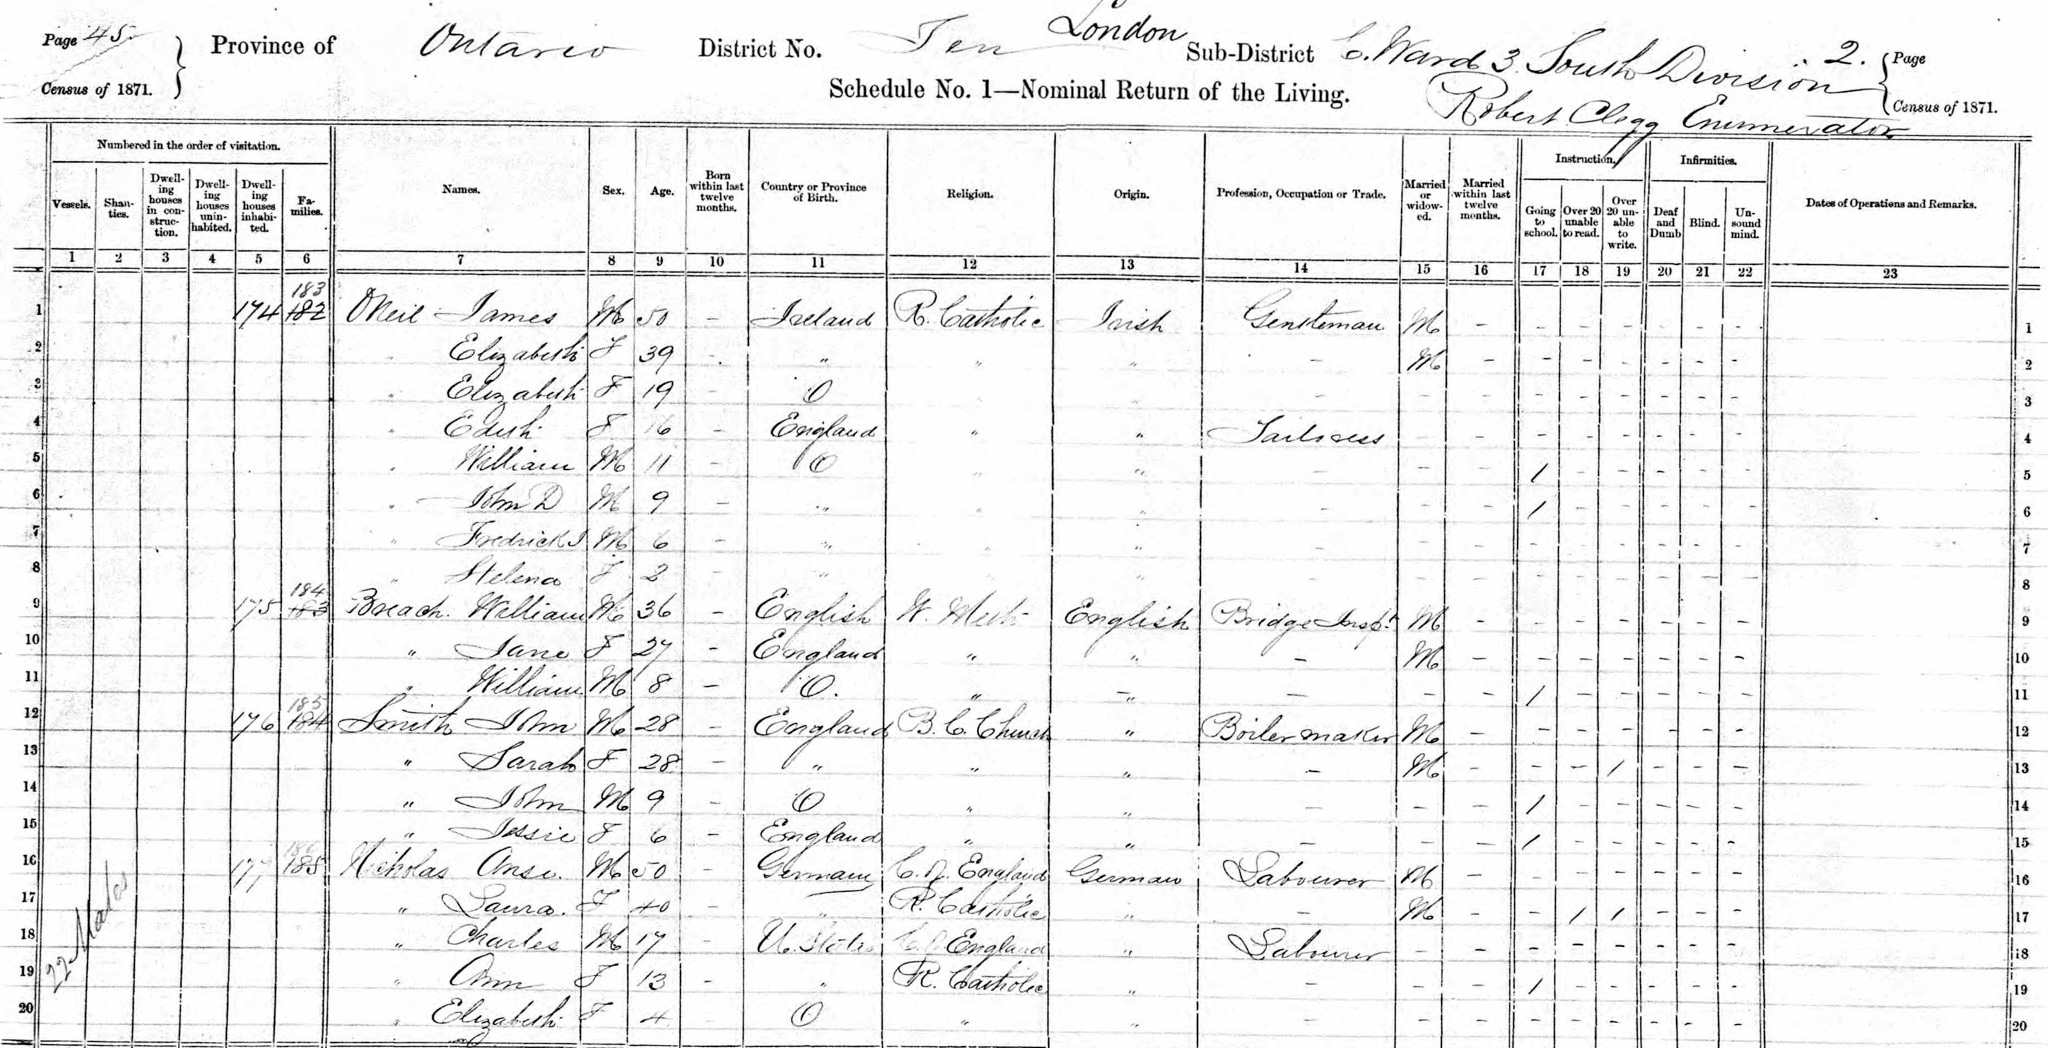 Page 45. Province of Ontario District No. Ten London Sub-District C. Ward 3. South Division 2. Page
Census of 1871. Schedule No. 1—Nominal Return of the Living. Robert Clegg Enumerator Census of 1871.
Numbered in the order of visitation. Instruction. Infirmities.
Vessels. Shanties. Dwelling houses in construction. Dwelling houses uninhabited. Dwelling houses inhabited. Families. Names. Sex. Age. Born within last twelve months. Country or Province of Birth. Religion. Origin. Profession, Occupation or Trade. Married or widowed. Married within last twelve months. Going to school. Over 20 unable to read. Over 20 unable to write. Deaf and Dumb Blind. Unsound mind. Dates of Operations and Remarks.
1 2 3 4 5 6 7 8 9 10 11 12 13 14 15 16 17 18 19 20 21 22 23
1 174 183 182 ONeil James M 50 - Ireland R. Catholic Irish Gentleman M - - - - - - - 1
2 " Elizabeth F 39 - " " " - M - - - - - - - 2
3 " Elizabeth F 19 - O " " - - - - - - - - - 3
4 " Edith F 16 - England " " Tailoress - - - - - - - - 4
5 " William M 11 - O " " - - - / - - - - - 5
6 " John D M 9 - " " " - - - / - - - - - 6
7 " Fredrick J M 6 - " " " - - - - - - - - - 7
8 " Helena F 2 - " " " - - - - - - - - - 8
9 175 184 183 Breach. William M 36 - English W. Meth English Bridge Inspt. M - - - - - - - 9
10 " Jane F 27 - England " " - M - - - - - - - 10
11 " William M 8 - O. " " - - - / - - - - - 11
12 176 185 184 Smith John M 28 - England B. C. Church " Boiler maker M - - - - - - - 12
13 " Sarah F 28 - " " " - M - - - / - - - 13
14 " John M 9 - O " " - - - / - - - - - 14
15 " Jessie F 6 - England " " - - - / - - - - - 15
16 177 186 185 Nicholas M 50 - German C. of England German Labourer M - - - - - - - 16
17 " Laura. F 40 - " R. Catholic " - M - - / / - - - 17
18 " Charles M 17 - U. States C. of England " Labourer - - - - - - - - 18
19 " Ann F 13 - " R. Catholic " - - - / - - - - - 19
20 " Elizabeth F 4 - O " " - - - - - - - - - 20
22 Males